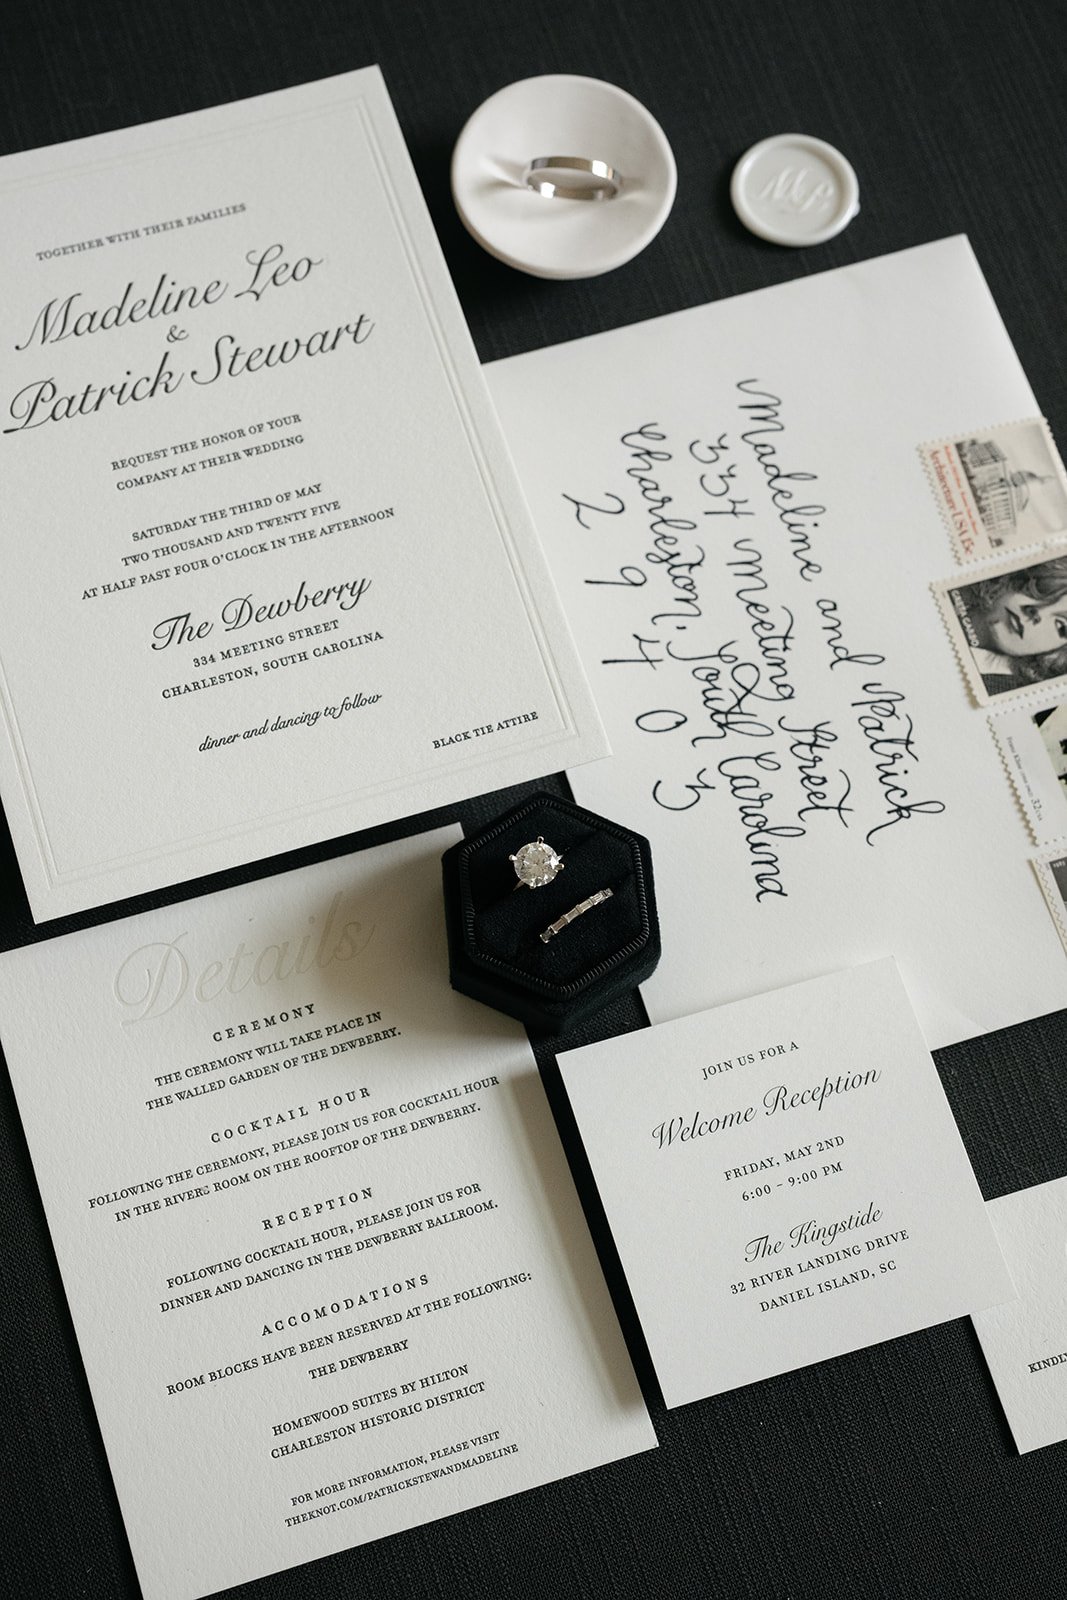 TOGETHER WITH THEIR FAMILIES
Madeline Leo
&
Patrick Stewart
REQUEST THE HONOR OF YOUR
COMPANY AT THEIR WEDDING
SATURDAY THE THIRD OF MAY
TWO THOUSAND AND TWENTY FIVE
AT HALF PAST FOUR O'CLOCK IN THE AFTERNOON
The Dewberry
334 MEETING STREET
CHARLESTON, SOUTH CAROLINA
dinner and dancing to follow
BLACK TIE ATTIRE
Madeline and Patrick
334 Meeting Street
Charleston, South Carolina
2 9 4 0 3
Architecture USA 15c
32
Details
CEREMONY
THE CEREMONY WILL TAKE PLACE IN
THE WALLED GARDEN OF THE DEWBERRY.
COCKTAIL HOUR
FOLLOWING THE CEREMONY, PLEASE JOIN US FOR COCKTAIL HOUR
IN THE RIVERS ROOM ON THE ROOFTOP OF THE DEWBERRY.
RECEPTION
FOLLOWING COCKTAIL HOUR, PLEASE JOIN US FOR
DINNER AND DANCING IN THE DEWBERRY BALLROOM.
ACCOMODATIONS
ROOM BLOCKS HAVE BEEN RESERVED AT THE FOLLOWING:
THE DEWBERRY
HOMEWOOD SUITES BY HILTON
CHARLESTON HISTORIC DISTRICT
FOR MORE INFORMATION, PLEASE VISIT
THEKNOT.COM/PATRICKSTEWANDMADELINE
JOIN US FOR A
Welcome Reception
FRIDAY, MAY 2ND
6:00 - 9:00 PM
The Kingstide
32 RIVER LANDING DRIVE
DANIEL ISLAND, SC
KINDLY